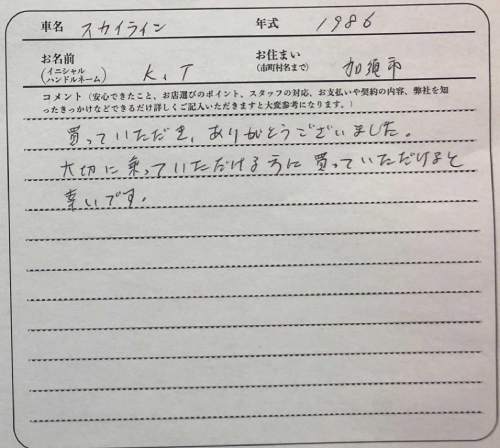 車名 スカイライン 年式 1986
お名前 (イニシャル ハンドルネーム) K、T お住まい (市町村名まで) 加須市
コメント (安心できたこと、お店選びのポイント、スタッフの対応、お支払いや契約の内容、弊社を知
ったきっかけなどできるだけ詳しくご記入いただきますと大変参考になります。)
買っていただき、ありがとうございました。
大切に乗っていただける方に買っていただけると
幸いです。